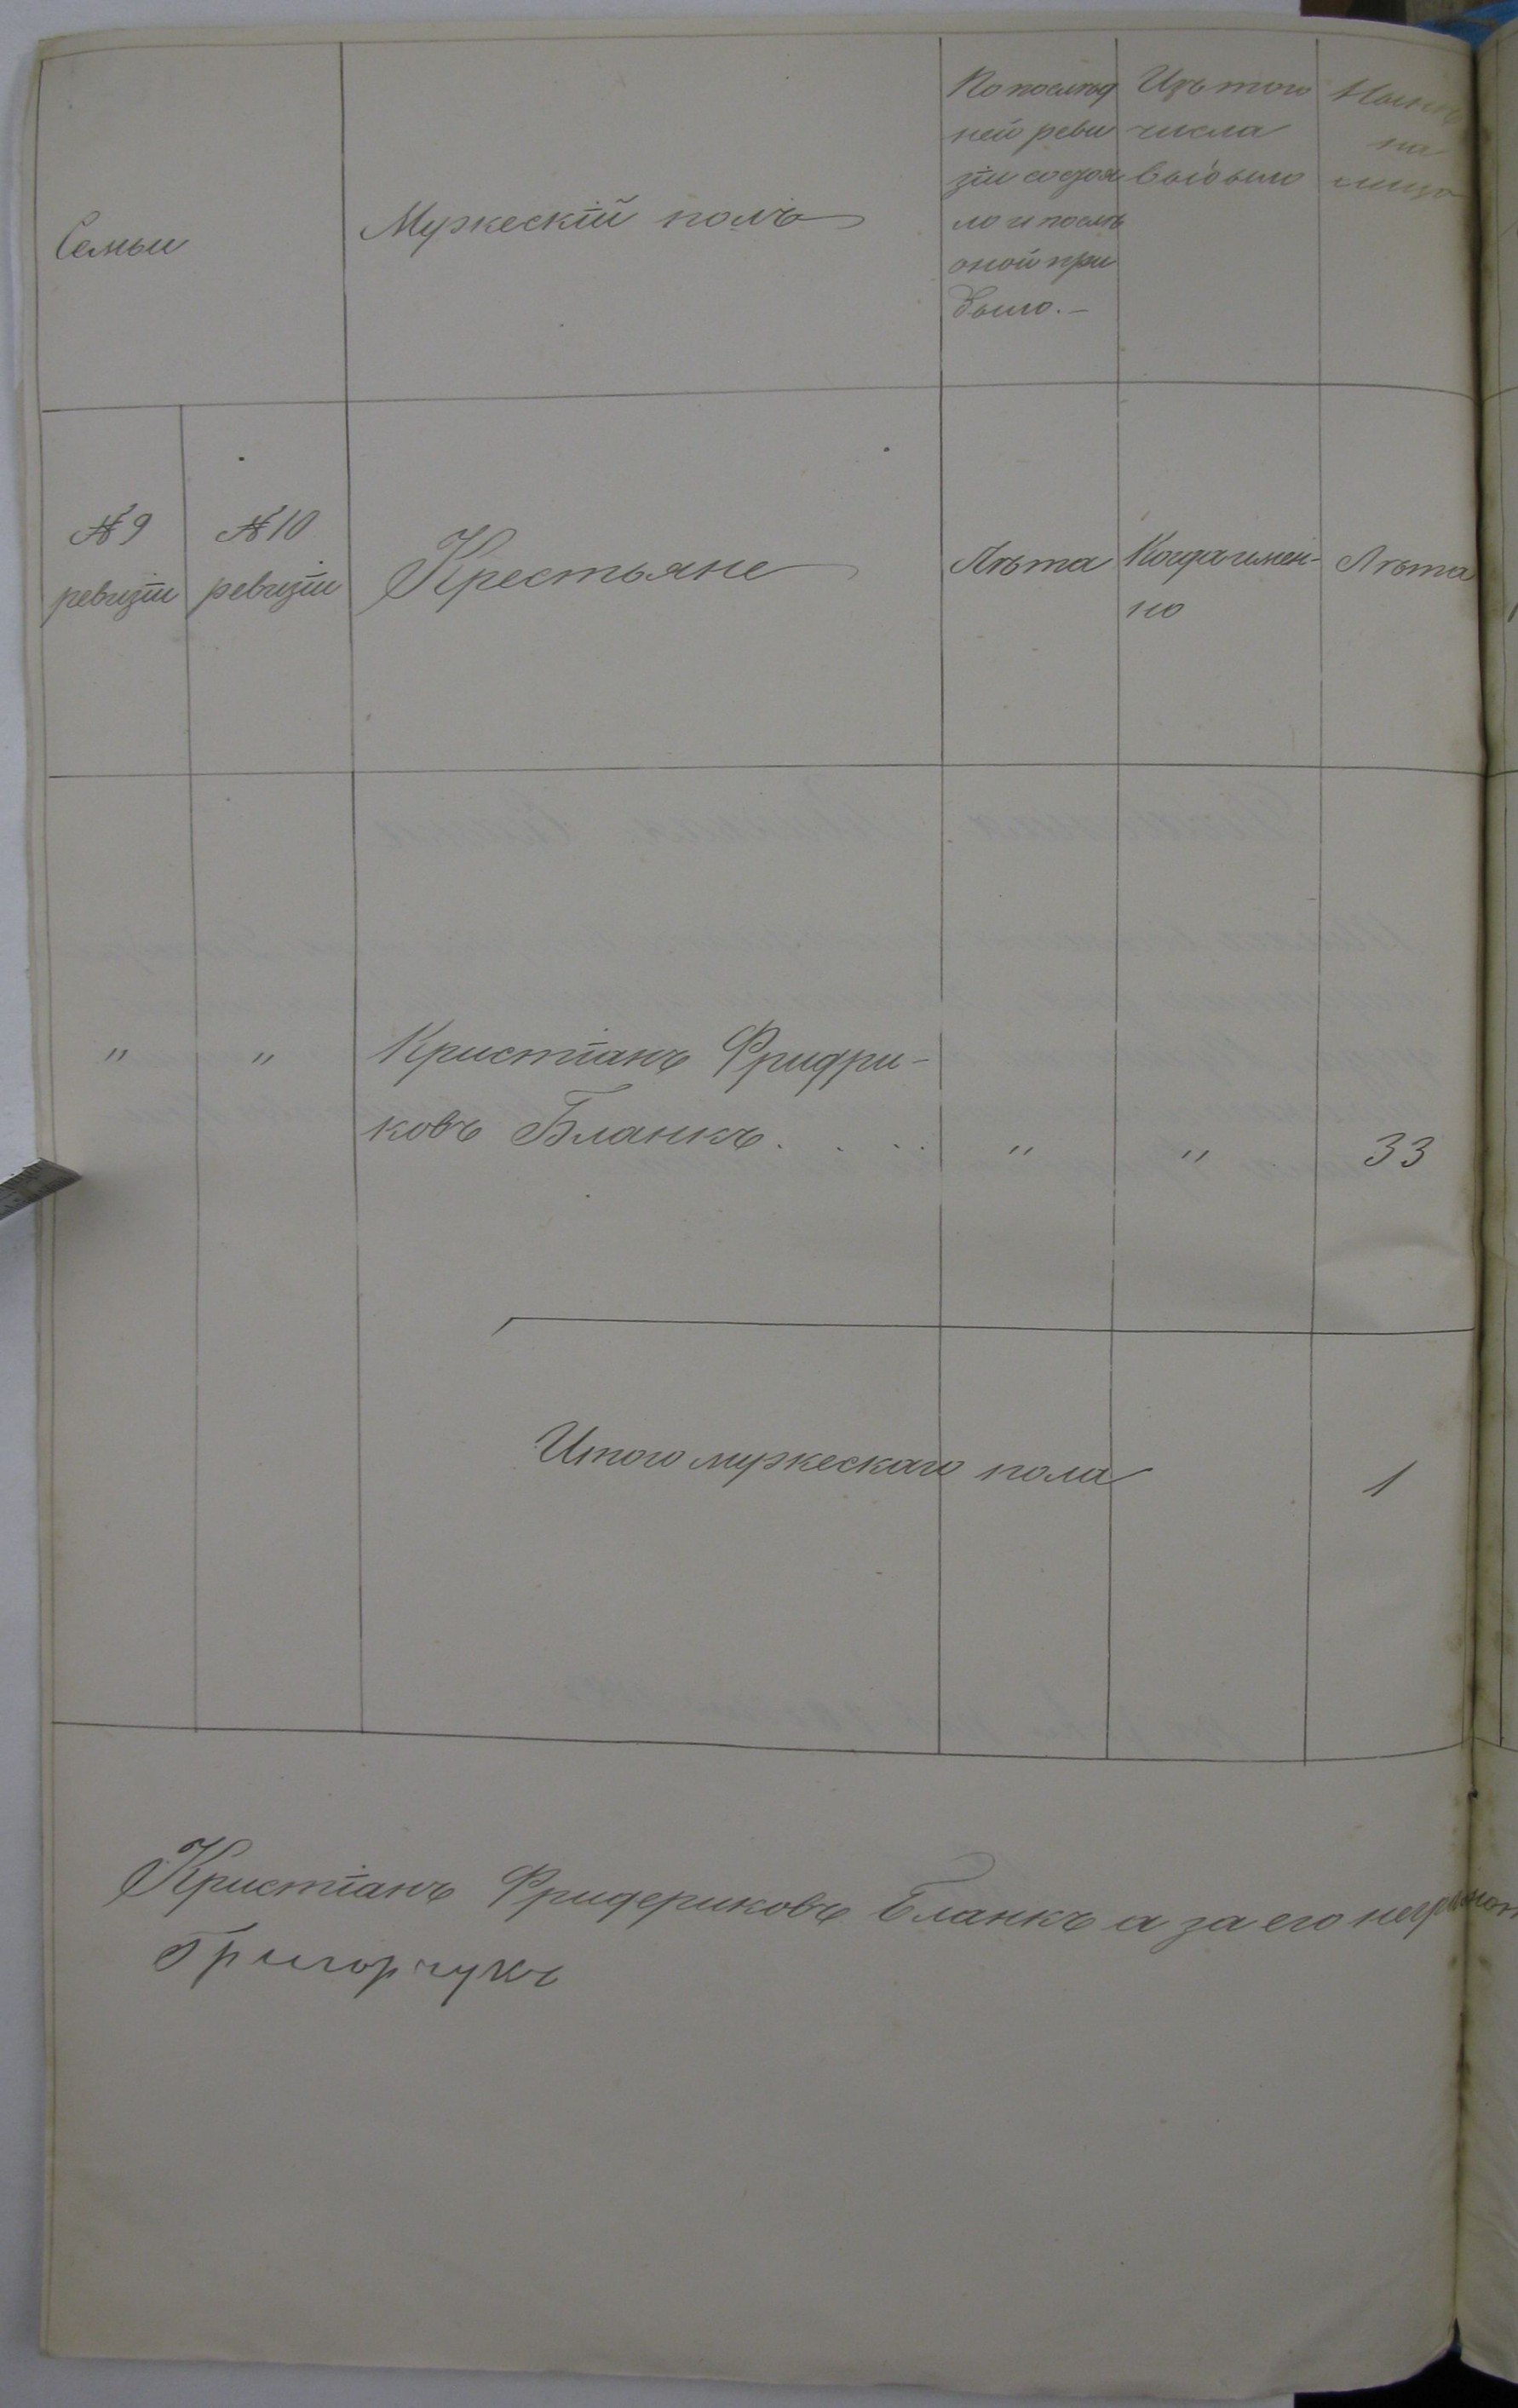 Семьи
Мужескій полъ
По послѣд
ней реви
зіи состоя
ло и послѣ
оной при
было.-
Изъ того
числа
выбыло
Нынѣ
на
лицо
№ 9
ревизіи
№ 10
ревизіи
Крестьяне
Лѣта
Когда имен-
но
Лѣта
" " Кристіанъ Фридри-
ковъ Бланкъ. . . . " " 33
Итого мужескаго пола 1
Кристіанъ Фридериковъ Бланкъ а за его
Григорчукъ